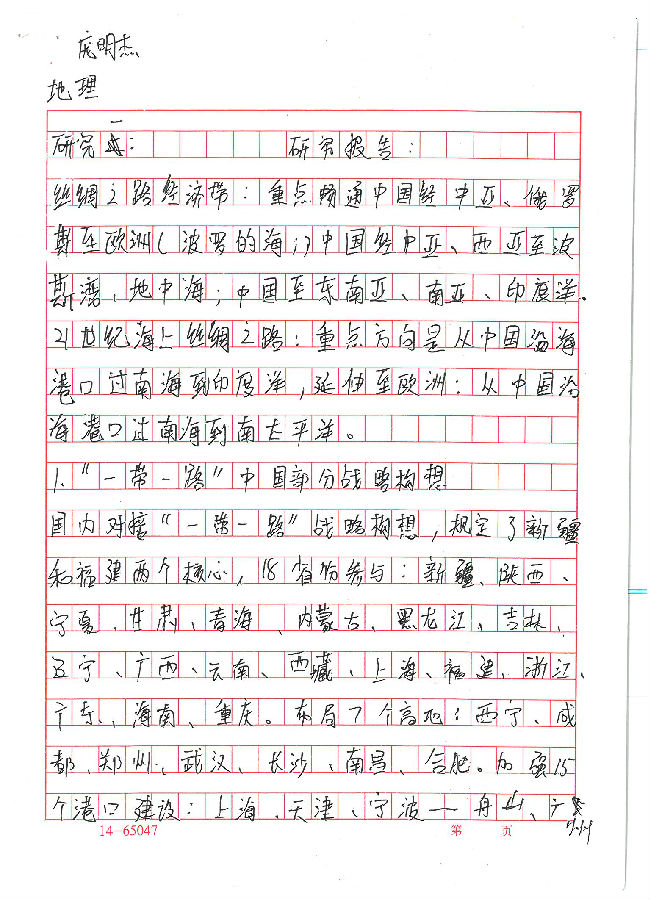 庞明杰
地理
一
研究：研究报告：
丝绸之路经济带：重点畅通中国经中亚、俄罗
斯至欧洲(波罗的海)；中国经中亚、西亚至波
斯湾，地中海；中国至东南亚、南亚、印度洋。
21世纪海上丝绸之路：重点方向是从中国沿海
港口过南海到印度洋，延伸至欧洲；从中国沿
海港口过南海到南太平洋。
1."一带一路"中国部分战略构想
国内对接"一带一路"战略构想，规定了新疆
和福建两个核心，18省份参与：新疆、陕西、
宁夏、甘肃、青海、内蒙古、黑龙江、吉林、
辽宁、广西、云南、西藏、上海、福建、浙江、
广东、海南、重庆。布局7个高地：西宁、成
都、郑州、武汉、长沙、南昌、合肥。加强15
个港口建设：上海、天津、宁波—舟山、广
14 65047 第 页